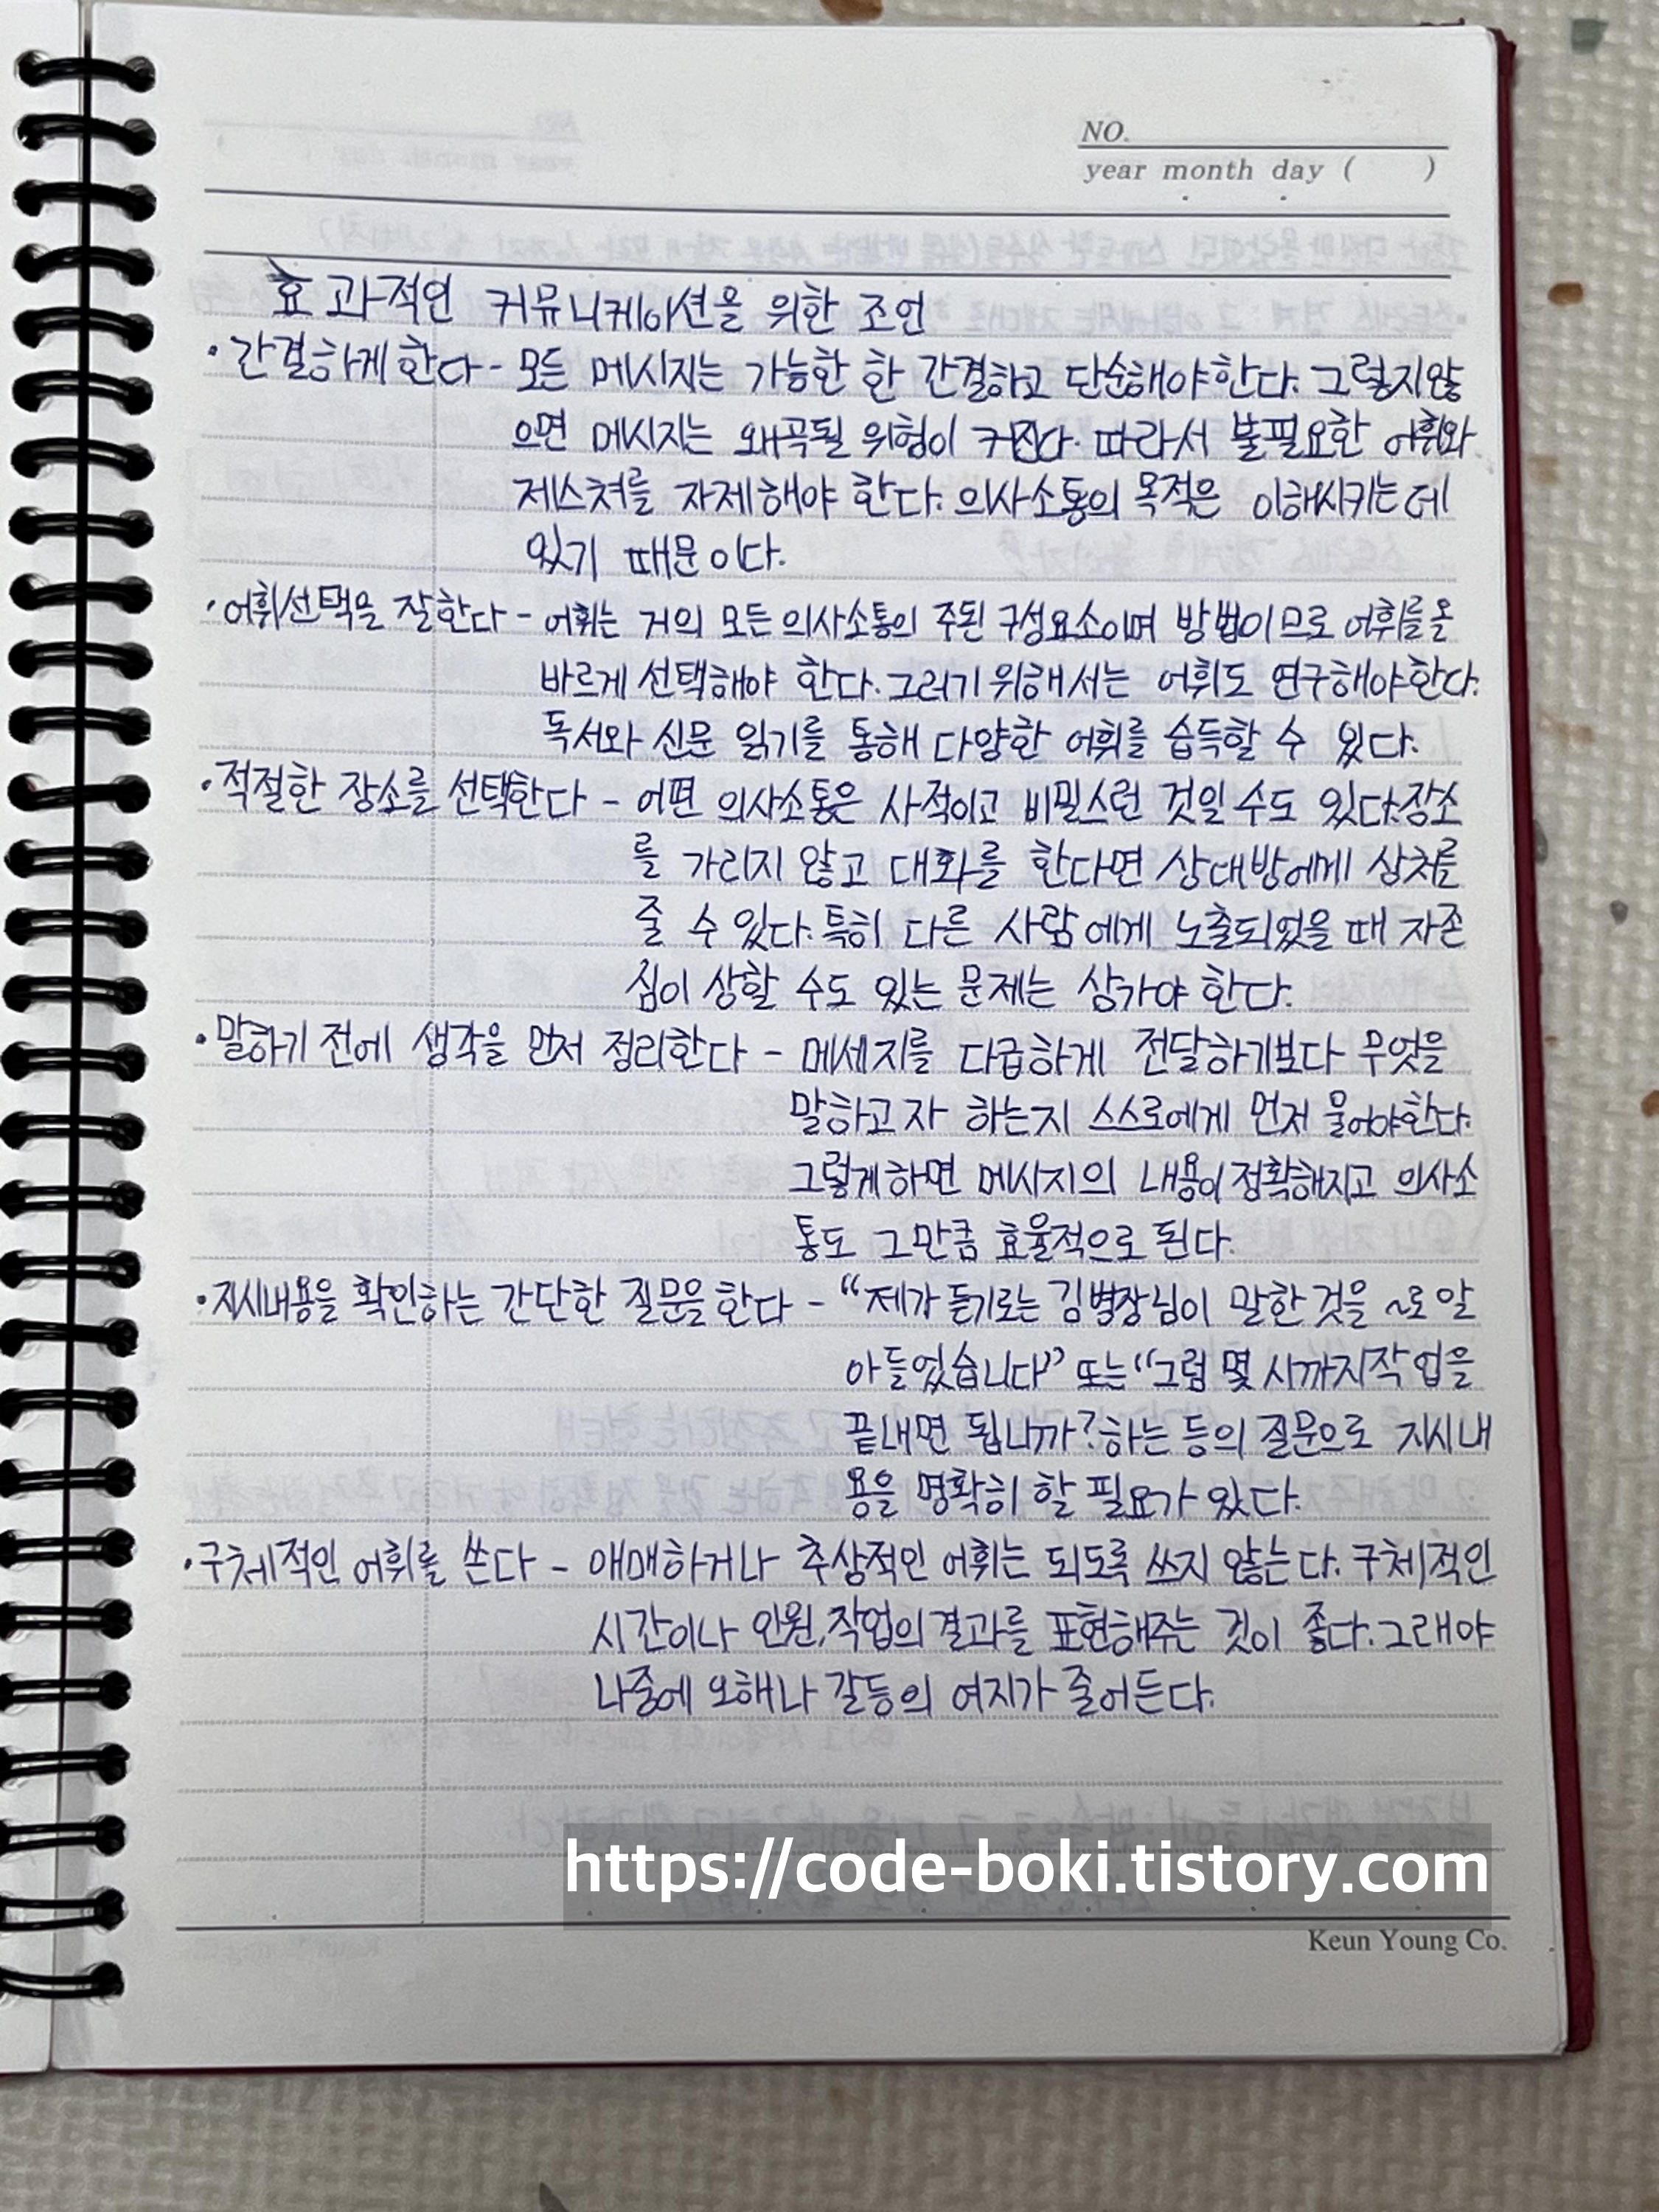 NO.
year month day ( )
효과적인 커뮤니케이션을 위한 조언
·간결하게 한다 - 모든 메시지는 가능한 한 간결하고 단순해야 한다. 그렇지 않
으면 메시지는 왜곡될 위험이 커진다. 따라서 불필요한 어휘와
제스쳐를 자제해야 한다. 의사소통의 목적은 이해시키는데
있기 때문이다.
·어휘선택을 잘한다 - 어휘는 거의 모든 의사소통의 주된 구성요소이며 방법이므로 어휘를 올
바르게 선택해야 한다. 그러기 위해서는 어휘도 연구해야 한다.
독서와 신문 읽기를 통해 다양한 어휘를 습득할 수 있다.
·적절한 장소를 선택한다 - 어떤 의사소통은 사적이고 비밀스런 것일 수도 있다. 장소
를 가리지 않고 대화를 한다면 상대방에게 상처를
줄 수 있다. 특히 다른 사람에게 노출되었을 때 자존
심이 상할 수도 있는 문제는 삼가야 한다.
·말하기 전에 생각을 먼저 정리한다 - 메세지를 다급하게 전달하기보다 무엇을
말하고자 하는지 스스로에게 먼저 물어야한다.
그렇게하면 메시지의 내용이 정확해지고 의사소
통도 그만큼 효율적으로 된다.
·지시내용을 확인하는 간단한 질문을 한다 - "제가 듣기로는 김병장님이 말한 것을 ~로 알
아들었습니다" 또는 "그럼 몇 시까지 작업을
끝내면 됩니까? 하는 등의 질문으로 지시내
용을 명확히 할 필요가 있다.
·구체적인 어휘를 쓴다 - 애매하거나 추상적인 어휘는 되도록 쓰지 않는다. 구체적인
시간이나 인원, 작업의 결과를 표현해주는 것이 좋다. 그래야
나중에 오해나 갈등의 여지가 줄어든다.
https://code-boki.tistory.com
Keun Young Co.